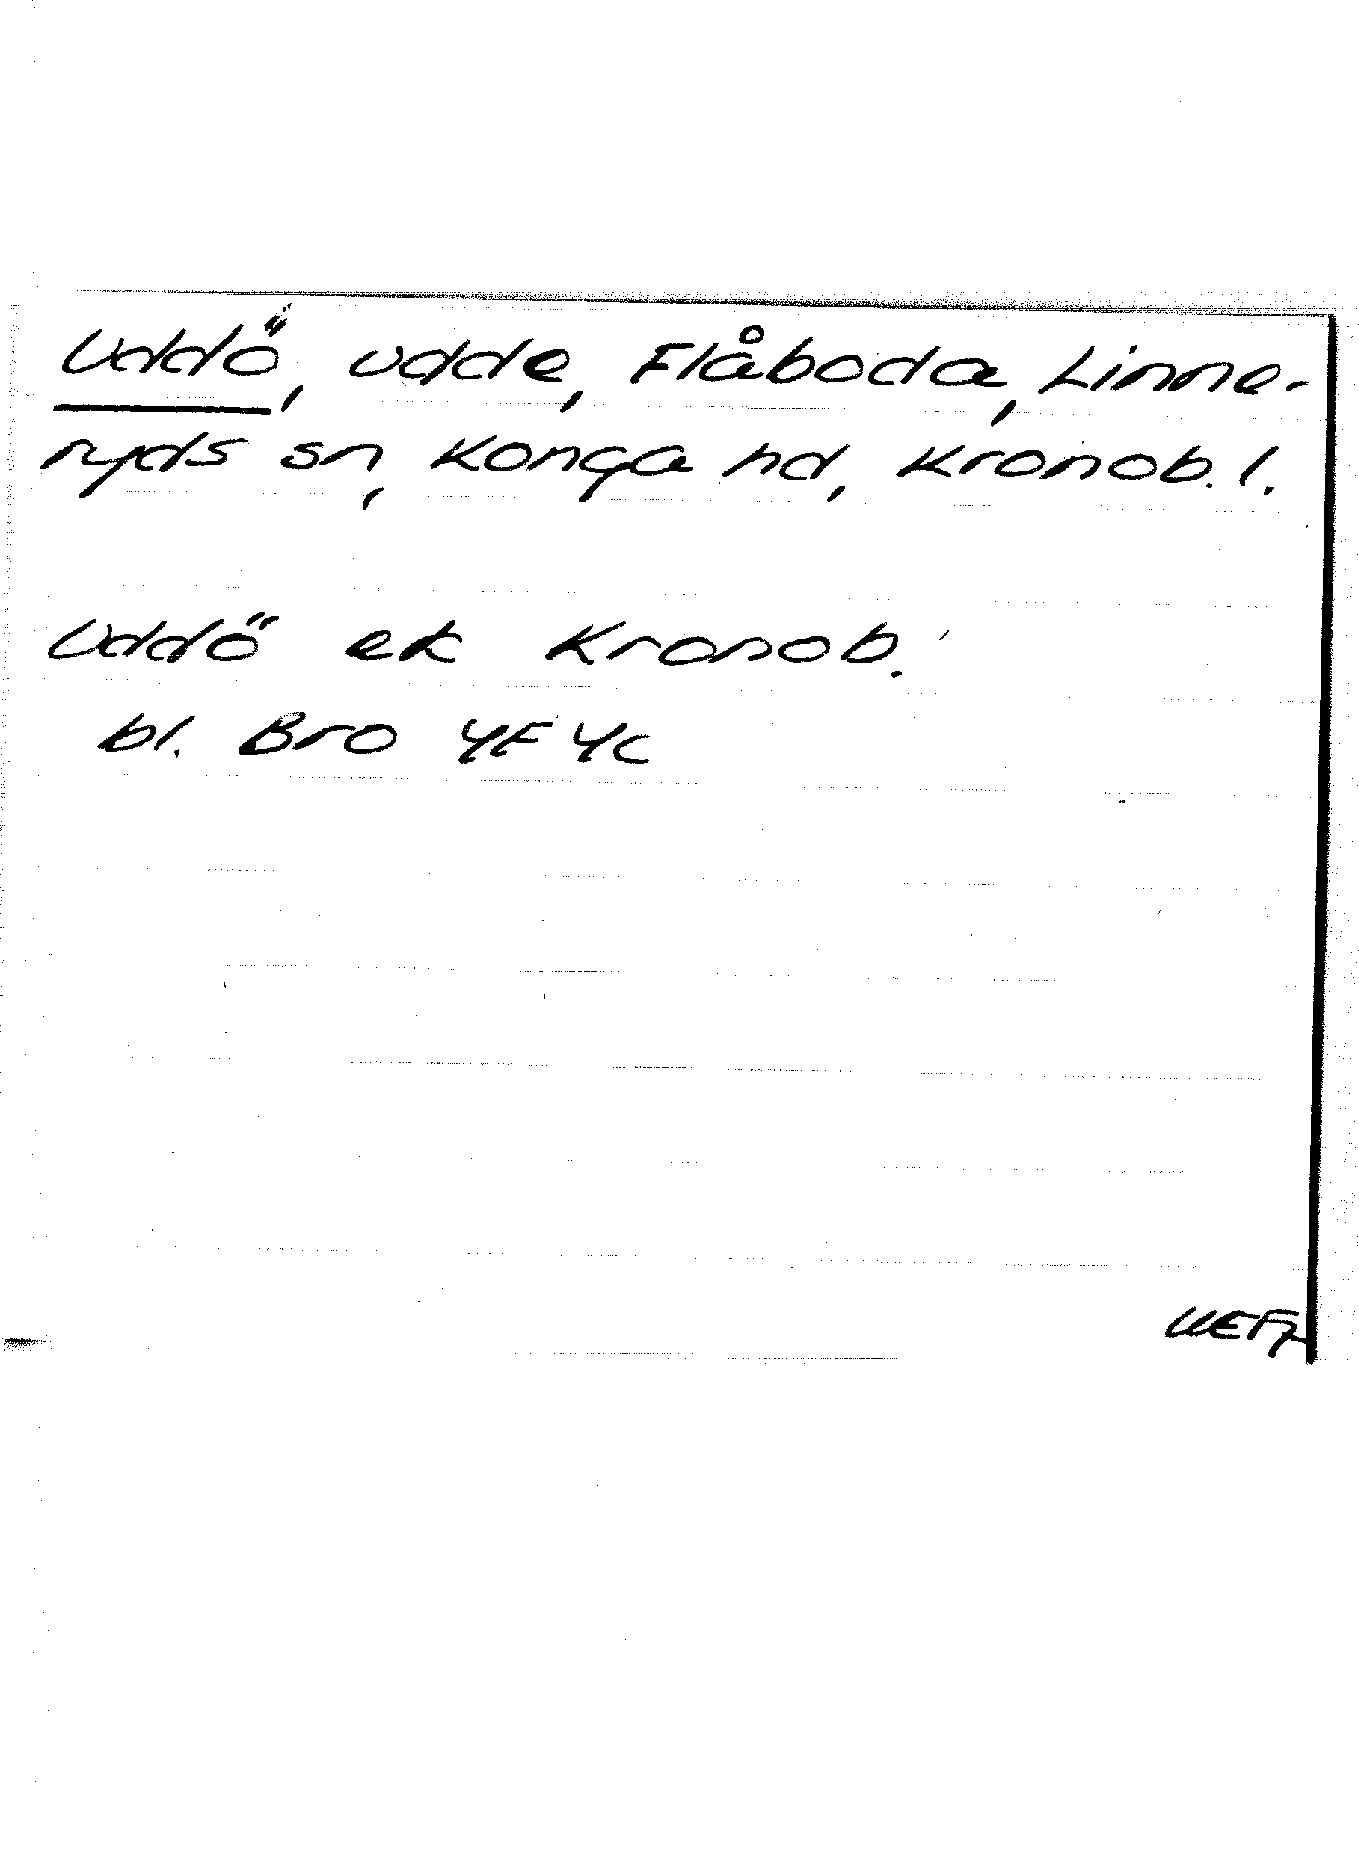 Uddö, udde, Flåboda, Linne-
ryds sn, Konga hd, Kronob. l.
Uddö ek Kronob.
bl. Bro 4F 4c